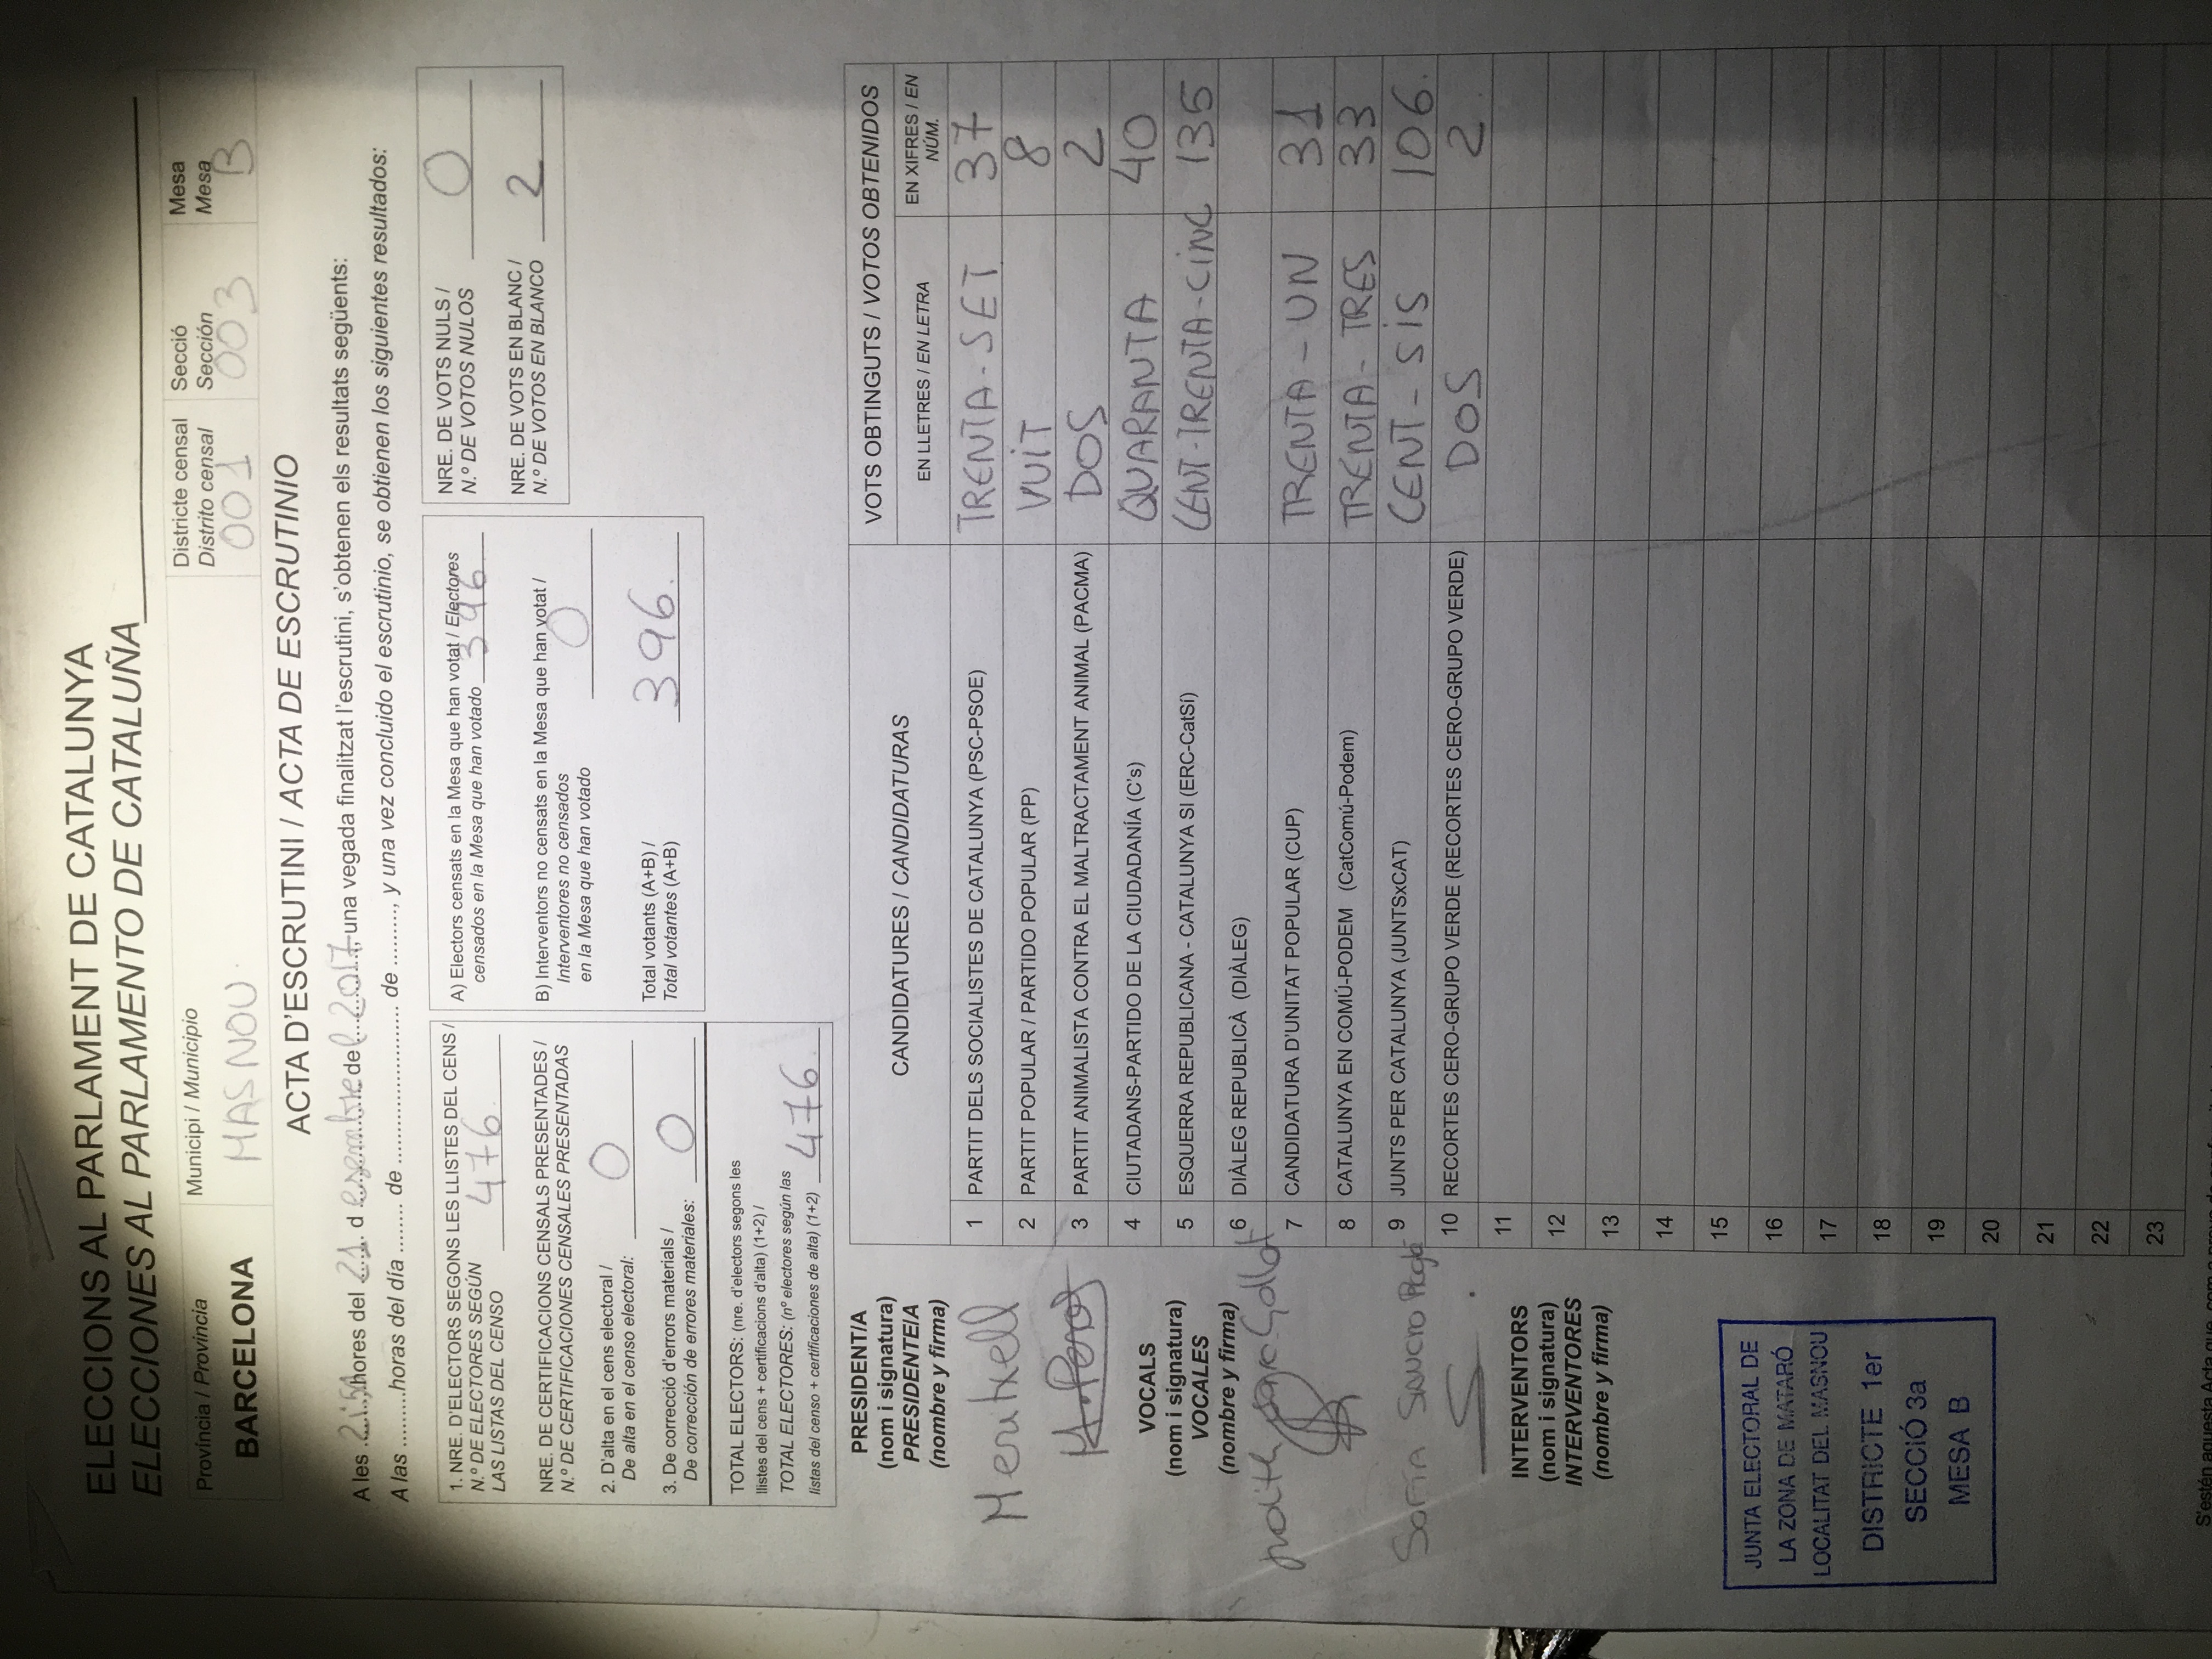 ELECCIONS AL PARLAMENT DE CATALUNYA
ELECCIONES AL PARLAMENTO DE CATALUÑA
Província / Provincia
BARCELONA
Municipi / Municipio
MASNOU
Districte censal
Distrito censal
001
Secció
Sección
003
Mesa
Mesa
B
ACTA D'ESCRUTINI / ACTA DE ESCRUTINIO
A les ........hores del 21 d esembre de l 2017, una vegada finalitzat l'escrutini, s'obtenen els resultats següents:
A las .........horas del día ........ de .......................... de ........., y una vez concluido el escrutinio, se obtienen los siguientes resultados:
1. NRE. D'ELECTORS SEGONS LES LLISTES DEL CENS /
N.º DE ELECTORES SEGÚN
LAS LISTAS DEL CENSO 476
NRE. DE CERTIFICACIONS CENSALS PRESENTADES /
N.º DE CERTIFICACIONES CENSALES PRESENTADAS
2. D'alta en el cens electoral /
De alta en el censo electoral: 0
3. De correcció d'errors materials /
De corrección de errores materiales: 0
TOTAL ELECTORS: (nre. d'electors segons les
llistes del cens + certificacions d'alta) (1+2) /
TOTAL ELECTORES: (nº electores según las
listas del censo + certificaciones de alta) (1+2) 476.
A) Electors censats en la Mesa que han votat / Electores
censados en la Mesa que han votado 396
B) Interventors no censats en la Mesa que han votat /
Interventores no censados
en la Mesa que han votado 0
Total votants (A+B) /
Total votantes (A+B) 396.
NRE. DE VOTS NULS /
N.º DE VOTOS NULOS 0
NRE. DE VOTS EN BLANC /
N.º DE VOTOS EN BLANCO 2
PRESIDENT/A
(nom i signatura)
PRESIDENTE/A
(nombre y firma)
Meritxell
VOCALS
(nom i signatura)
VOCALES
(nombre y firma)
Judith
SOFÍA
INTERVENTORS
(nom i signatura)
INTERVENTORES
(nombre y firma)
CANDIDATURES / CANDIDATURAS
VOTS OBTINGUTS / VOTOS OBTENIDOS
EN LLETRES / EN LETRA
EN XIFRES / EN
NÚM.
1 PARTIT DELS SOCIALISTES DE CATALUNYA (PSC-PSOE) TRENTA-SET 37
2 PARTIT POPULAR / PARTIDO POPULAR (PP) VUIT 8
3 PARTIT ANIMALISTA CONTRA EL MALTRACTAMENT ANIMAL (PACMA) DOS 2
4 CIUTADANS-PARTIDO DE LA CIUDADANÍA (C's) QUARANTA 40
5 ESQUERRA REPUBLICANA - CATALUNYA SI (ERC-CatSí) CENT-TRENTA-CINC 135
6 DIÀLEG REPUBLICÀ (DIÀLEG)
7 CANDIDATURA D'UNITAT POPULAR (CUP) TRENTA-UN 31
8 CATALUNYA EN COMÚ-PODEM (CatComú-Podem) TRENTA-TRES 33
9 JUNTS PER CATALUNYA (JUNTSxCAT) CENT-SIS 106.
10 RECORTES CERO-GRUPO VERDE (RECORTES CERO-GRUPO VERDE) DOS 2.
11
12
13
14
15
16
17
18
19
20
21
22
23
JUNTA ELECTORAL DE
LA ZONA DE MATARÓ
LOCALITAT DEL MASNOU
DISTRICTE 1er
SECCIÓ 3a
MESA B
S'estén aquesta Acta que, com a prova de